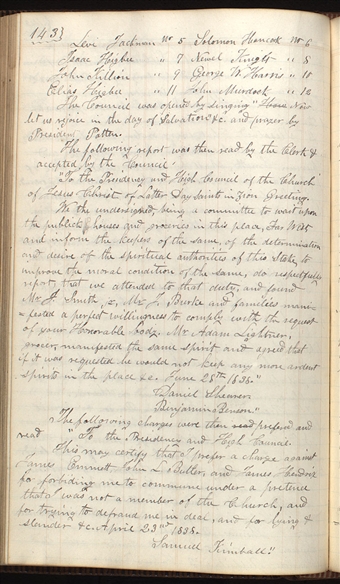 143
Levi Jackman No 5 Solomon Hancock No 6
Isaac Higbee " 7 Newel Knight " 8
John Killion " 9 George W. Harris " 10
Elias Higbee " 11 John Murdock " 12
The Council was opened by singing "Come
let us rejoice in the day of Salvation &c. and prayer by
President Patten.
The following report was then read by the Clerk &
accepted by the Council.
"To the Presidency and High Council of the Church
of Jesus Christ of Latter Day Saints in Zion, Greeting.
We the undersigned, being a committee to wait upon
the publick houses and groceries in this place, Far West
and inform the keepers of the same, of the determination
and desire of the spiritual authorities of this Stake, to
improve the moral condition of the same, do respectfully
report, that we attended to that duty, and found
Mr. Smith, & Mr. J. Burke and families mani-
fested a perfect willingness to comply with the request
of your Honorable body. Mr. Adam Lightner,
grocer, manifested the same spirit and agreed that
if it was requested he would not keep any more ardent
spirits in the place &c. June 28th 1838."
Daniel Shearer.
Benjamin Benson."
The following charges were then read preferred and
read "To the Presidency and High Council.
This may certify that I prefer a charge against
James Emmett John L. Butler, and James Hendrix
for forbiding me to commune under a pretence
that I was not a member of the Church, and
for trying to defraud me in deal, and for lying &
slander &c. April 23rd 1838.
Samuel Kimball."